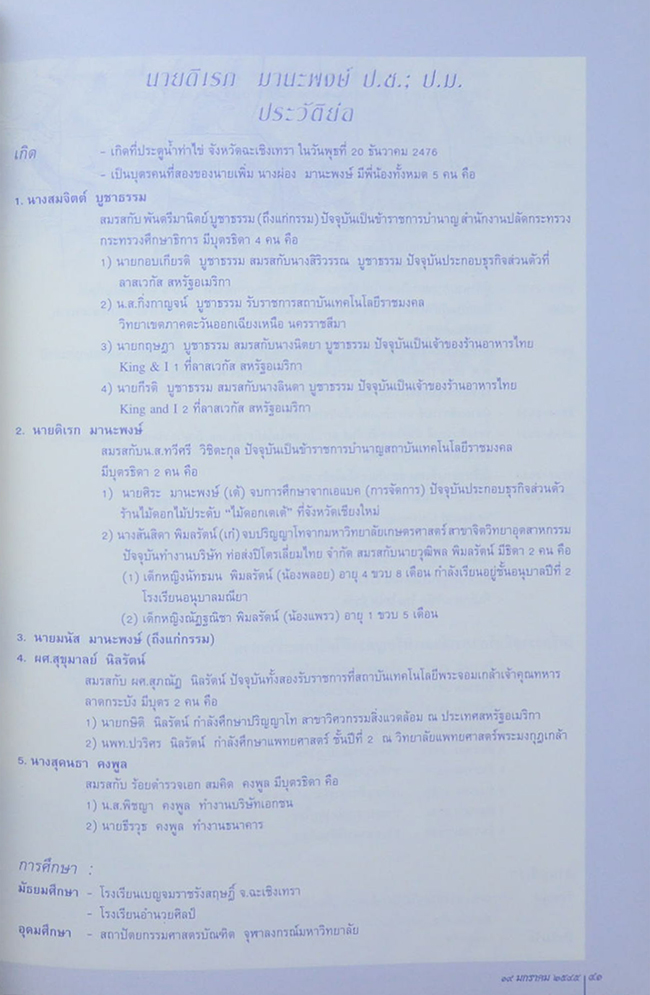 นายดิเรก มานะพงษ์ ป.ช.; ป.ม.
ประวัติย่อ
เกิด - เกิดที่ประตูน้ำท่าไข่ จังหวัดฉะเชิงเทรา ในวันพุธที่ 20 ธันวาคม 2476
- เป็นบุตรคนที่สองของนายเพิ่ม นางผ่อง มานะพงษ์ มีพี่น้องทั้งหมด 5 คน คือ
1. นางสมจิตต์ บูชาธรรม
สมรสกับ พันตรีมานิตย์ บูชาธรรม (ถึงแก่กรรม) ปัจจุบันเป็นข้าราชการบำนาญ สำนักงานปลัดกระทรวง
กระทรวงศึกษาธิการ มีบุตรธิดา 4 คน คือ
1) นายกอบเกียรติ บูชาธรรม สมรสกับนางสิริวรรณ บูชาธรรม ปัจจุบันประกอบธุรกิจส่วนตัวที่
ลาสเวกัส สหรัฐอเมริกา
2) น.ส.กิ่งกาญจน์ บูชาธรรม รับราชการสถาบันเทคโนโลยีราชมงคล
วิทยาเขตภาคตะวันออกเฉียงเหนือ นครราชสีมา
3) นายกฤษฎา บูชาธรรม สมรสกับนางนิตยา บูชาธรรม ปัจจุบันเป็นเจ้าของร้านอาหารไทย
King & I 1 ที่ลาสเวกัส สหรัฐอเมริกา
4) นายกีรติ บูชาธรรม สมรสกับนางลินดา บูชาธรรม ปัจจุบันเป็นเจ้าของร้านอาหารไทย
King and I 2 ที่ลาสเวกัส สหรัฐอเมริกา
2. นายดิเรก มานะพงษ์
สมรสกับน.ส.ทวีศรี วิชิตะกุล ปัจจุบันเป็นข้าราชการบำนาญสถาบันเทคโนโลยีราชมงคล
มีบุตรธิดา 2 คน คือ
1) นายศิระ มานะพงษ์ (เต้) จบการศึกษาจากเอแบค (การจัดการ) ปัจจุบันประกอบธุรกิจส่วนตัว
ร้านไม้ดอกไม้ประดับ "ไม้ดอกเดเต้" ที่จังหวัดเชียงใหม่
2) นางสันสิตา พิมลรัตน์ (เก๋) จบปริญญาโทจากมหาวิทยาลัยเกษตรศาสตร์ สาขาจิตวิทยาอุตสาหกรรม
ปัจจุบันทำงานบริษัท ท่อส่งปิโตรเลี่ยมไทย จำกัด สมรสกับนายวุฒิพล พิมลรัตน์ มีธิดา 2 คน คือ
(1) เด็กหญิงนัทธมน พิมลรัตน์ (น้องพลอย) อายุ 4 ขวบ 8 เดือน กำลังเรียนอยู่ชั้นอนุบาลปีที่ 2
โรงเรียนอนุบาลมณียา
(2) เด็กหญิงณัฏฐณิชา พิมลรัตน์ (น้องแพรว) อายุ 1 ขวบ 5 เดือน
3. นายมนัส มานะพงษ์ (ถึงแก่กรรม)
4. ผศ.สุขุมาลย์ นิลรัตน์
สมรสกับ ผศ.สุภณัฏ นิลรัตน์ ปัจจุบันทั้งสองรับราชการที่สถาบันเทคโนโลยีพระจอมเกล้าเจ้าคุณทหาร
ลาดกระบัง มีบุตร 2 คน คือ
1) นายกษิติ นิลรัตน์ กำลังศึกษาปริญญาโท สาขาวิศวกรรมสิ่งแวดล้อม ณ ประเทศสหรัฐอเมริกา
2) นพท.ปวริศร นิลรัตน์ กำลังศึกษาแพทยศาสตร์ ชั้นปีที่ 2 ณ วิทยาลัยแพทยศาสตร์พระมงกุฎเกล้า
5. นางสุคนธา คงพูล
สมรสกับ ร้อยตำรวจเอก สมคิด คงพูล มีบุตรธิดา คือ
1) น.ส.พิชญา คงพูล ทำงานบริษัทเอกชน
2) นายธีรวุธ คงพูล ทำงานธนาคาร
การศึกษา :
มัธยมศึกษา - โรงเรียนเบญจมราชรังสฤษฎิ์ จ.ฉะเชิงเทรา
- โรงเรียนอำนวยศิลป์
อุดมศึกษา - สถาปัตยกรรมศาสตรบัณฑิต จุฬาลงกรณ์มหาวิทยาลัย
๑๙ มกราคม ๒๕๔๕